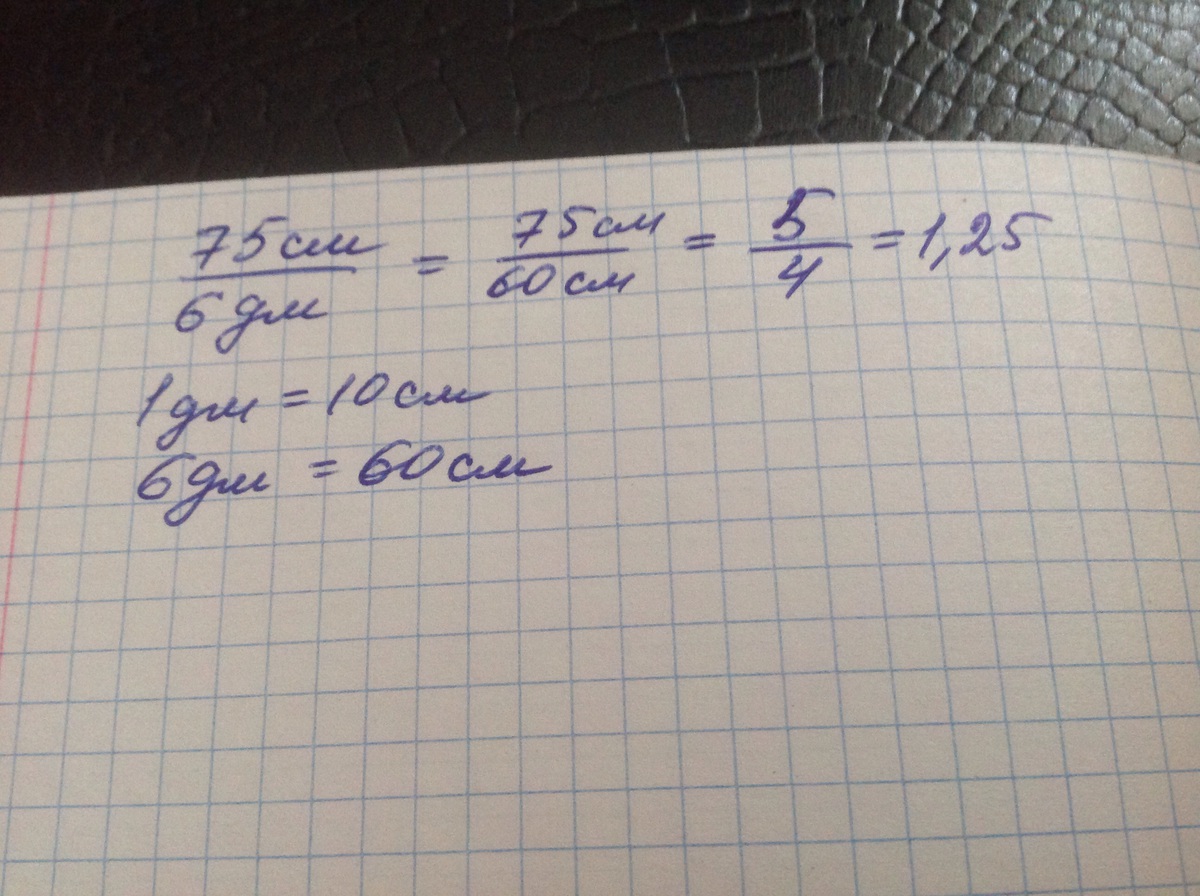 75 см / 6 дм = 75 см / 60 см = 5 / 4 = 1,25
1 дм = 10 см
6 дм = 60 см